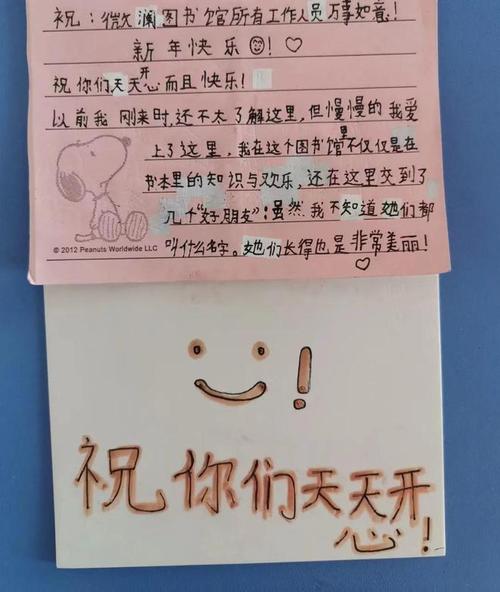 祝：微澜图书馆所有工作人员万事如意！
新年快乐！
祝你们天天开心而且快乐！
以前我刚来时，还不太了解这里，但慢慢的我爱
上了这里，我在这个图书馆里不仅仅是在
书本里的知识与欢乐，还在这里交到了
几个“好朋友”！虽然我不知道她们都
叫什么名字。她们长得也是非常美丽！
© 2012 Peanuts Worldwide LLC
！
祝你们天天开
心！